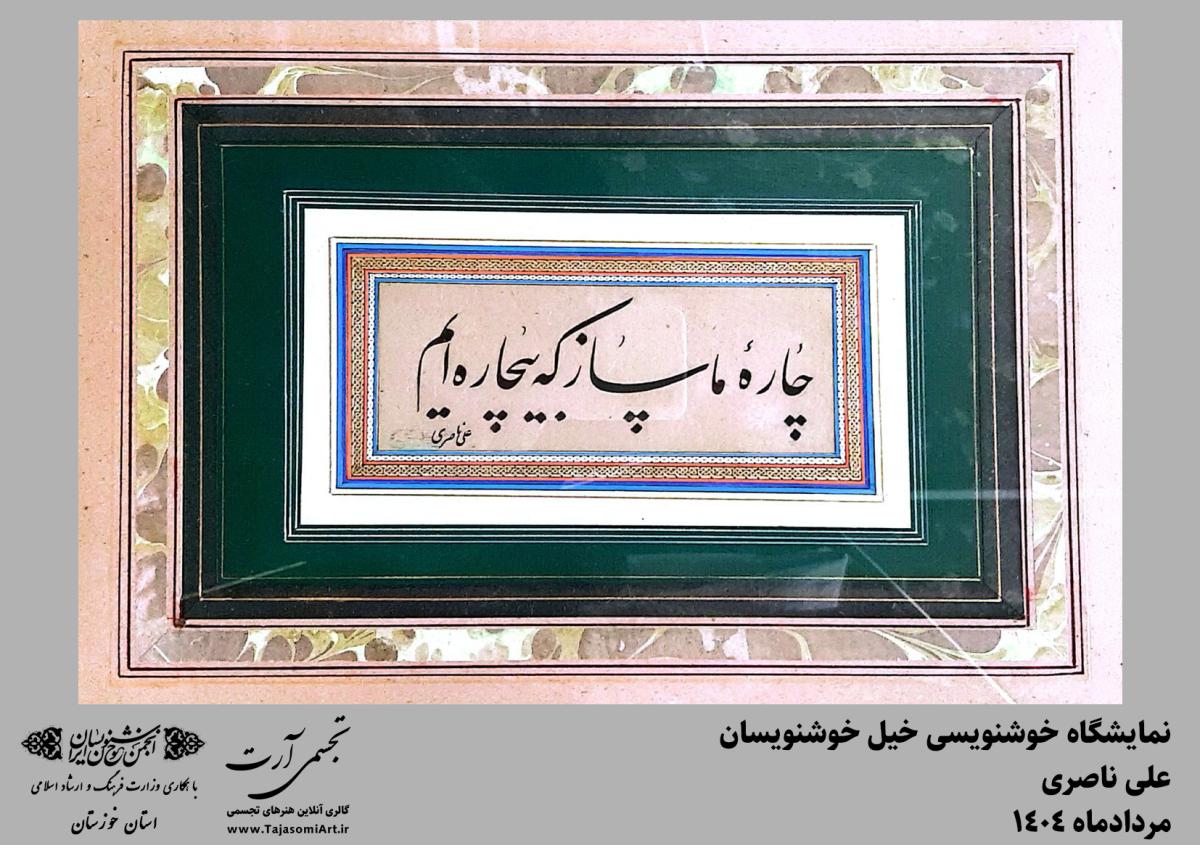 چارهٔ ما ساز که بیچاره‌ایم
علی ناصری
نمایشگاه خوشنویسی خیل خوشنویسان
علی ناصری
مردادماه ۱۴۰۴
تجسمی آرت
گالری آنلاین هنرهای تجسمی
www.TajasomiArt.ir
انجمن خوشنویسان ایران
با همکاری وزارت فرهنگ و ارشاد اسلامی
استان خوزستان